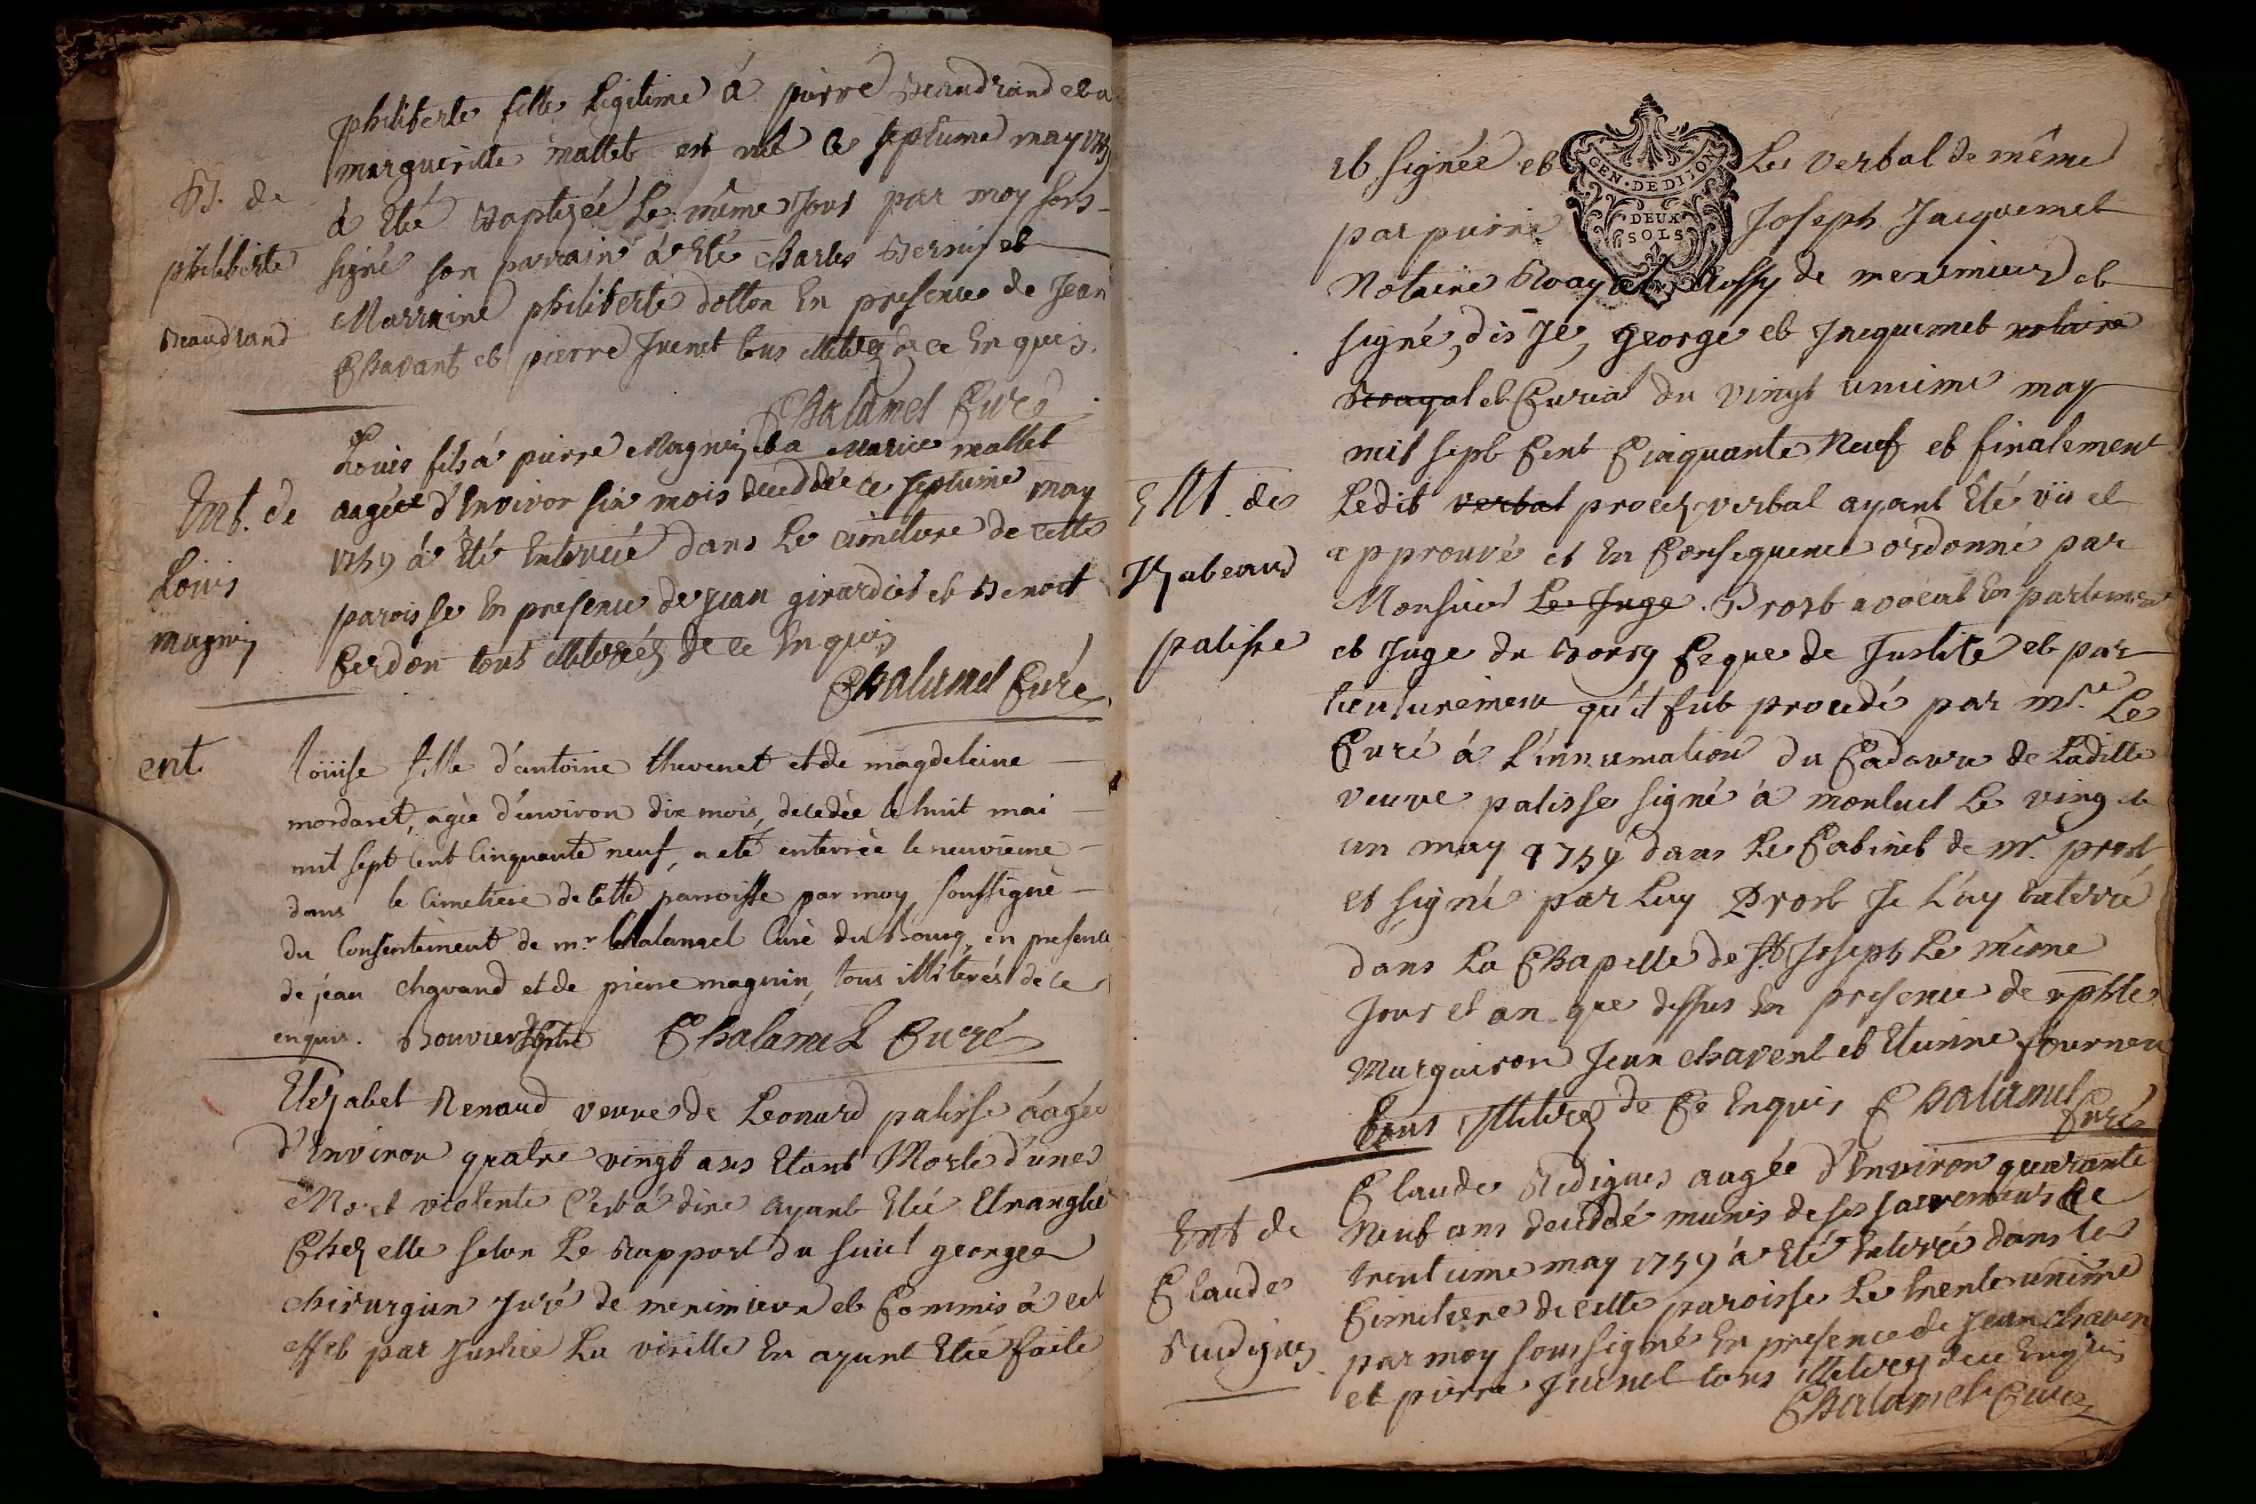 philiberte fille Legitime á pierre Beaudrand et a
margueritte mallet est né Ce septieme may 1759
B. de
á Eté Baptizéé Le même Jour par moy sous-
philiberte
signé son parrain á Eté Charles Berny et
Marraine philiberte dotton En presence de Jean
Beaudrand
Chavant et pierre Juenet tous illiterez de ce Enquis.
Chalamel Curé
Louis fils á pierre Magnin et a Marie mallet
Ent. de
aagéé d'Environ six mois decedéé ce septieme may
1759 á Eté Enterréé dans Le cimetiere de cette
Louis
paroisse En presence de jean girardiet et Benoit
magnin
Cerdon tous illiterés de ce Enquis
Chalamel Curé
ent
loüise fille d'antoine thevenet et de magdeleine
mordaret, agée d'environ dix mois, decedée le huit mai
mil sept cent Cinquante neuf, a eté enterrée le neuvieme
dans le Cimetiere de cette parroisse par moy soussigné
du Consentement de mr Chalamel Curé du Bourg, en presence
de jean chavand et de pierre magnin, tous illiterés de ce
enquis. Bouvier Chalamel Curé
Elizabet Renaud veuve de Leonard palisse áagéé
d'Environ quatre vingt ans Etant Morte d'une
Mort violente C'est á dire ayant Eté Etranglée
Chez elle selon Le Rapport du sieur george
chirurgien Juré de meximieux et Commis á cet
effet par Justice La visitte En ayant Eté faite
et signée et Le verbal de même
GEN. DE DIJON
DEUX
SOLS
par pierre Joseph Jacquemet
Notaire Royal de meximieux et
signé, dis Je, george et Jacquemet notaire
Royal et Curial du vingt unieme may
mil sept Cent Cinquante Neuf et finalement
Ent. de
Ledit verbal procez verbal ayant Eté vü et
approuvé et En Consequence ordonné par
Izabeau
Monsieur Le Juge. Prost avocat En parlement
palisse
et Juge du Bourg Ce que de Justice et par
ticulierement qu'il fut procedé par Mr. Le
Curé á L'innumation du Cadavre de Laditte
veuve palisse signé á monluel Le vingt et
un may 1759 dans Le Cabinet de Mr. prost
et signé par Luy Prost Je L'ay Enterré
dans La Chapelle de St Joseph Le même
Jour et an que dessus En presence de
Marguiron Jean Chavent et Etienne fournea
tous illiterez de Ce Enquis Chalamel
Curé
Claude Redigues aagéé d'Environ quarante
Ent de
Neuf ans decedé munis de ses sacremens Le
trentieme may 1759 á Eté Enterré dans le
Claude
Cimetiere de cette paroisse Le trente unieme
par moy soussigné En presence de Jean Chaven
Redigues
et pierre Juenet tous illiterez de ce Enquis
Chalamel Curé